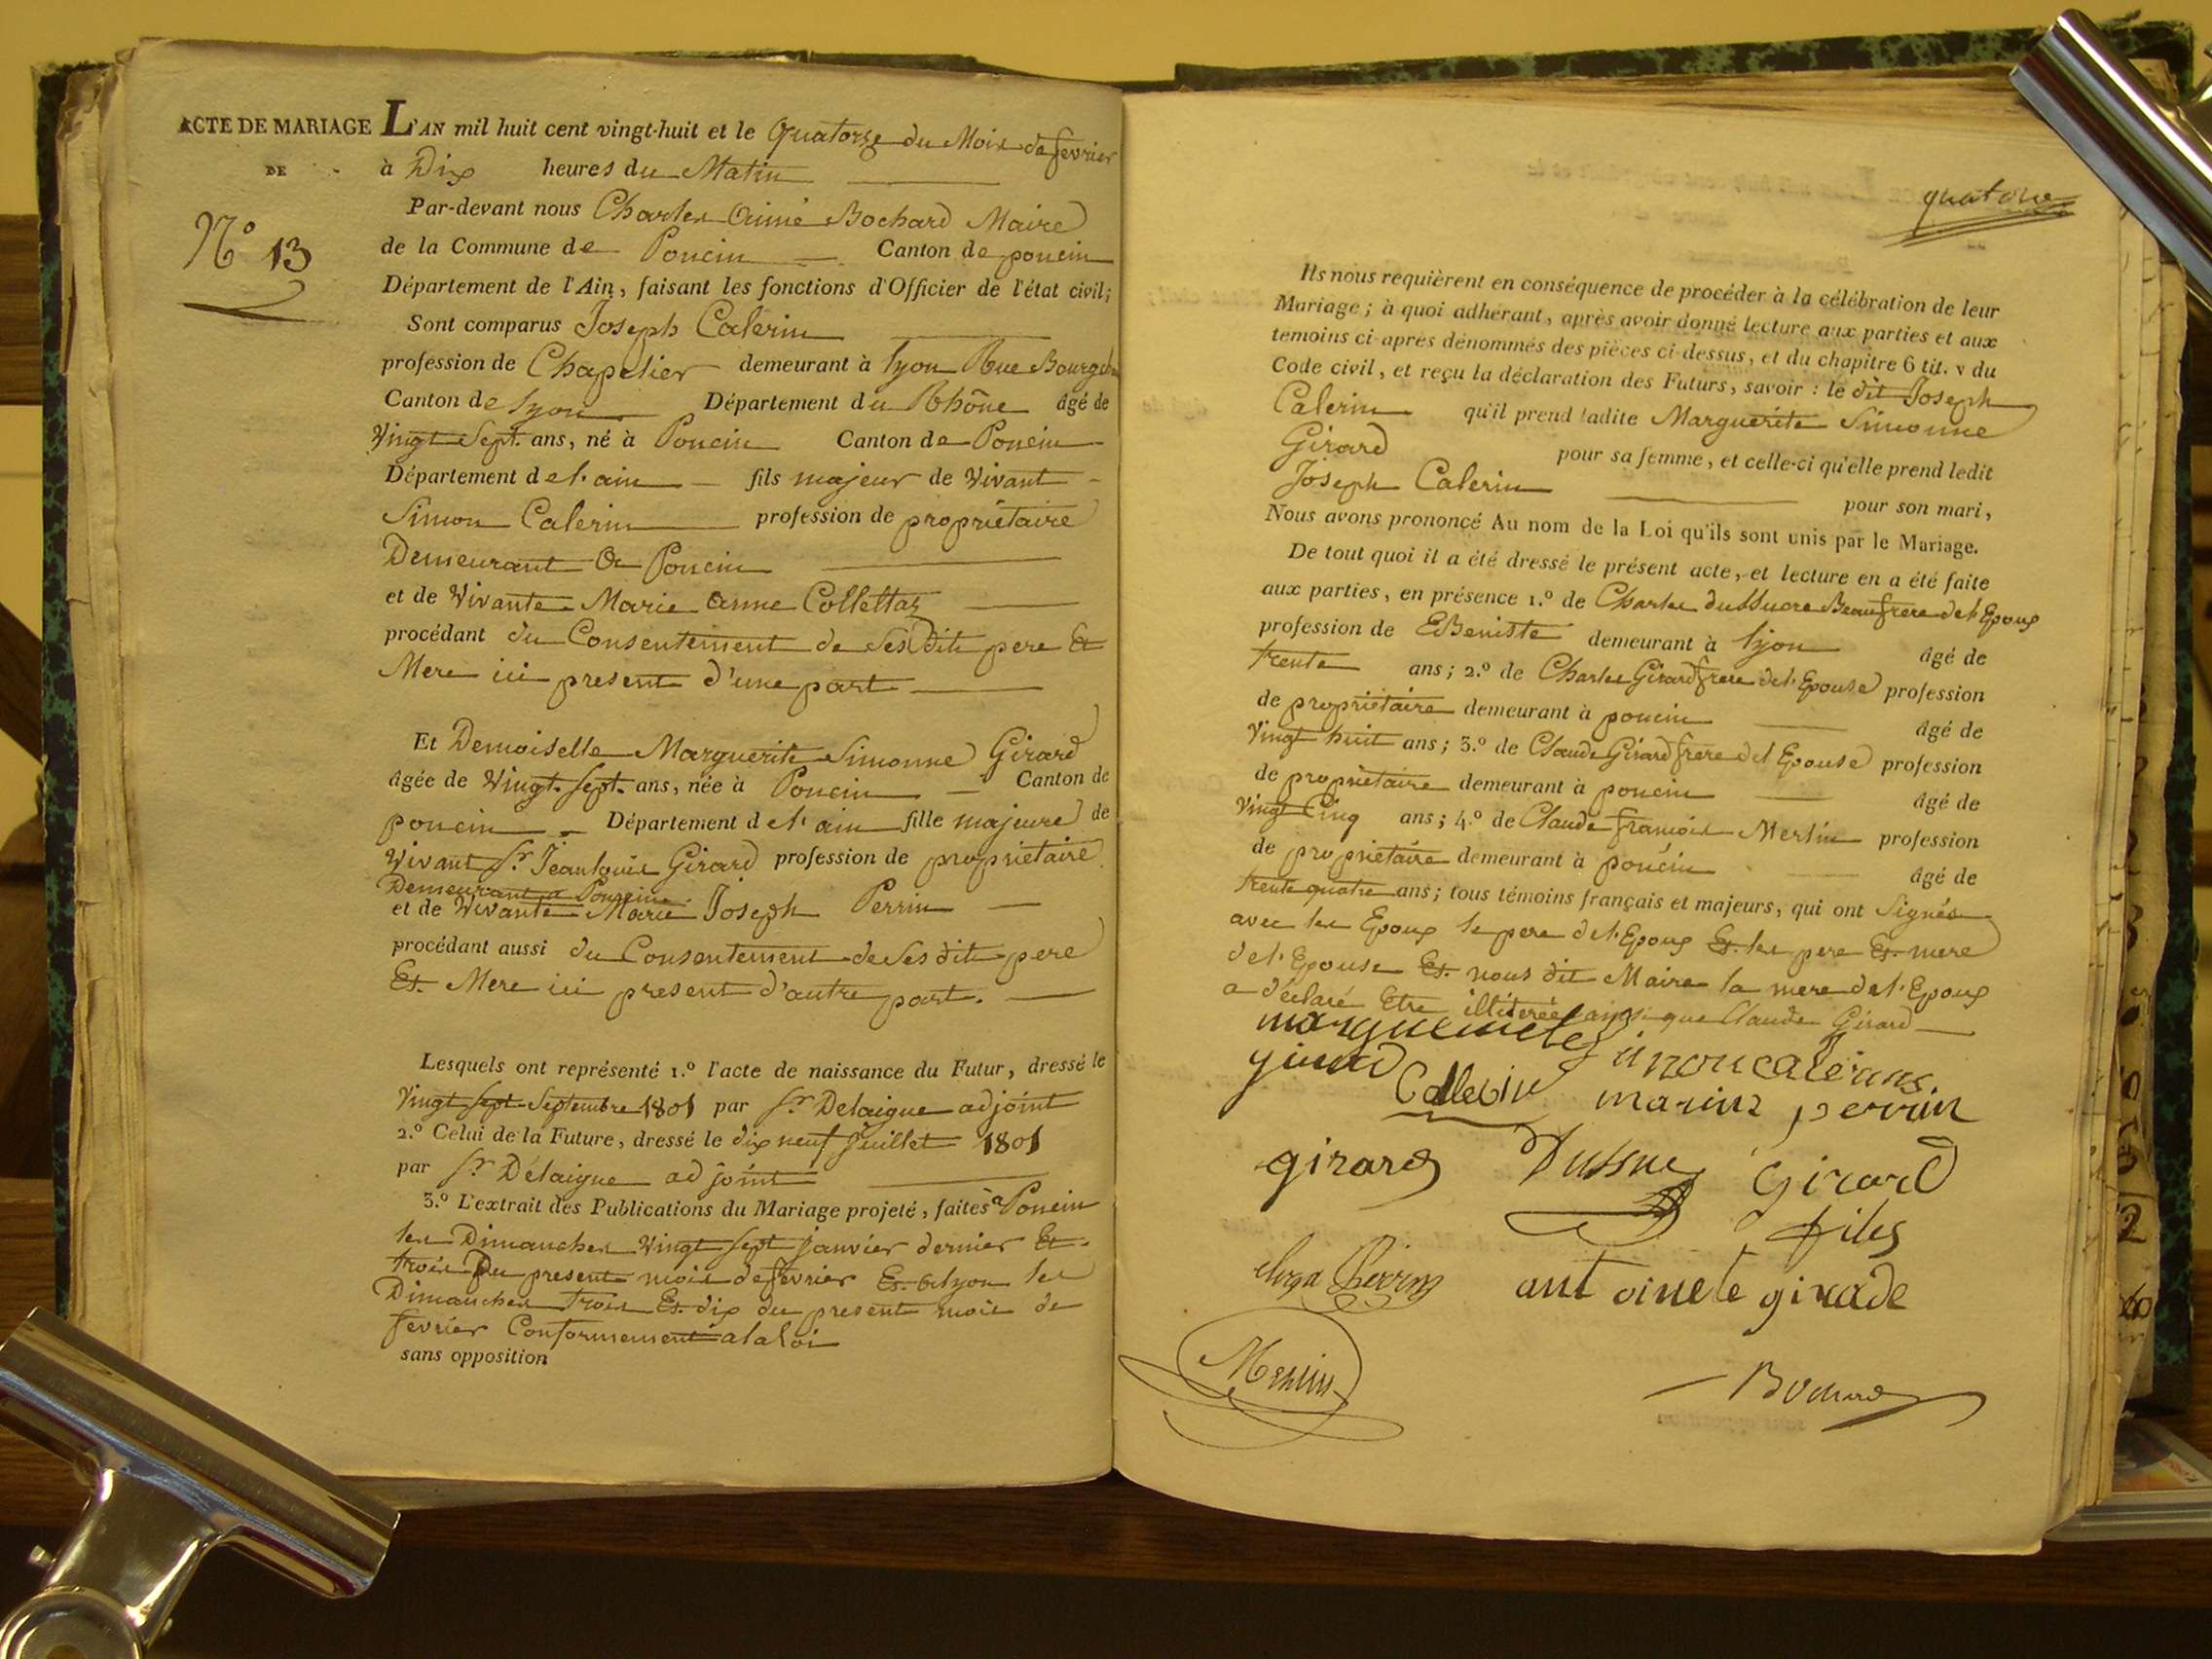 ACTE DE MARIAGE
DE
N.o 13
L'AN mil huit cent vingt-huit et le Quatorze du Mois de fevrier
à Dix heures du Matin
Par-devant nous Charles Aimé Bochard Maire
de la Commune de Poncin Canton de poncin
Département de l'Ain, faisant les fonctions d'Officier de l'état civil;
Sont comparus Joseph Calerin
profession de Chapelier demeurant à lyon Rue
Canton de lyon Département du Rhône âgé de
Vingt Sept ans, né à Poncin Canton de Poncin
Département del'ain fils majeur de Vivant
Simon Calerin profession de propriétaire
Demeurant a Poncin
et de Vivante Marie anne Collettaz
procédant du Consentement de Ses Dits pere Et
Mere ici present d'une part
Et Demoiselle Marguerite Simonne Girard
âgée de Vingt Sept ans, née à Poncin Canton de
poncin Département del'ain fille majeure de
Vivant Sr. Jean louis Girard profession de propriétaire
Demeurant a Poncin
et de Vivante Marie Joseph Perrin
procédant aussi du Consentement de Ses dits pere
Et Mere ici present d'autre part.
Lesquels ont représenté 1.º l'acte de naissance du Futur, dressé le
Vingt Sept Septembre 1801 par Sr. Delaigue adjoint
2.º Celui de la Future, dressé le dix neuf Juillet 1801
par Sr. Delaigue adjoint
3.º L'extrait des Publications du Mariage projeté, faites a Poncin
les Dimanches Vingt Sept janvier dernier Et
trois Du present mois de fevrier Et a lyon les
Dimanches trois Et dix du present mois de
fevrier Conformement a la loi
sans opposition
quatorze
Ils nous requièrent en conséquence de procéder à la célébration de leur
Mariage; à quoi adhérant, après avoir donné lecture aux parties et aux
témoins ci-après dénommés des pièces ci-dessus, et du chapitre 6 tit. v du
Code civil, et reçu la déclaration des Futurs, savoir: le dit Joseph
Calerin qu'il prend ladite Marguerite Simonne
Girard pour sa femme, et celle-ci qu'elle prend ledit
Joseph Calerin pour son mari,
Nous avons prononcé Au nom de la Loi qu'ils sont unis par le Mariage.
De tout quoi il a été dressé le présent acte, et lecture en a été faite
aux parties, en présence 1.º de Charles Beaufrere del'Epoux
profession de EBeniste demeurant à lyon âgé de
trente ans; 2.º de Charles Girard frere del'Epouse profession
de propriétaire demeurant à poncin âgé de
Vingt huit ans; 3.º de Claude Girard frere del'Epouse profession
de propriétaire demeurant à poncin âgé de
Vingt Cinq ans; 4.º de Claude françois Merlin profession
de propriétaire demeurant à poncin âgé de
trente quatre ans; tous témoins français et majeurs, qui ont Signés
avec les Epoux le pere del'Epoux Et les pere Et mere
del'Epouse Et nous dit Maire la mere del'Epoux
a déclaré Etre illiterée ainsi que Claude Girard
girard
Callerin
perrin
girard
Girard
fils
Perrin
antoinete girade
Merlin
Bochard